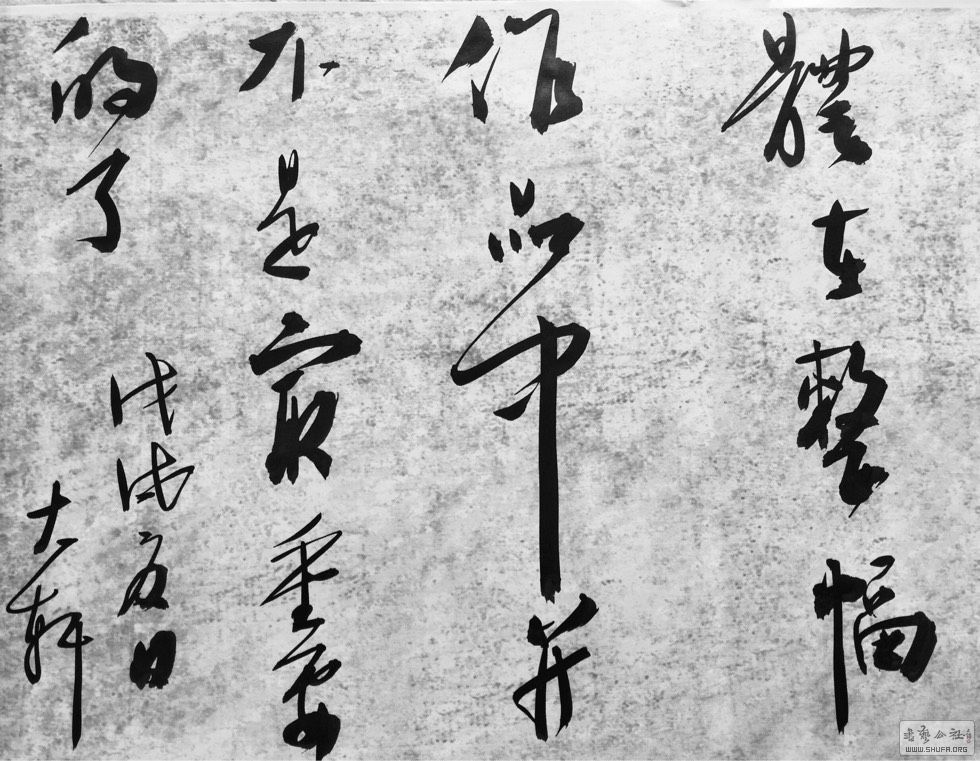 體在整幅
作品中并
不是最重要
的了
戊戌夏日
大軒
書藝公社
WWW.SHUFA.ORG